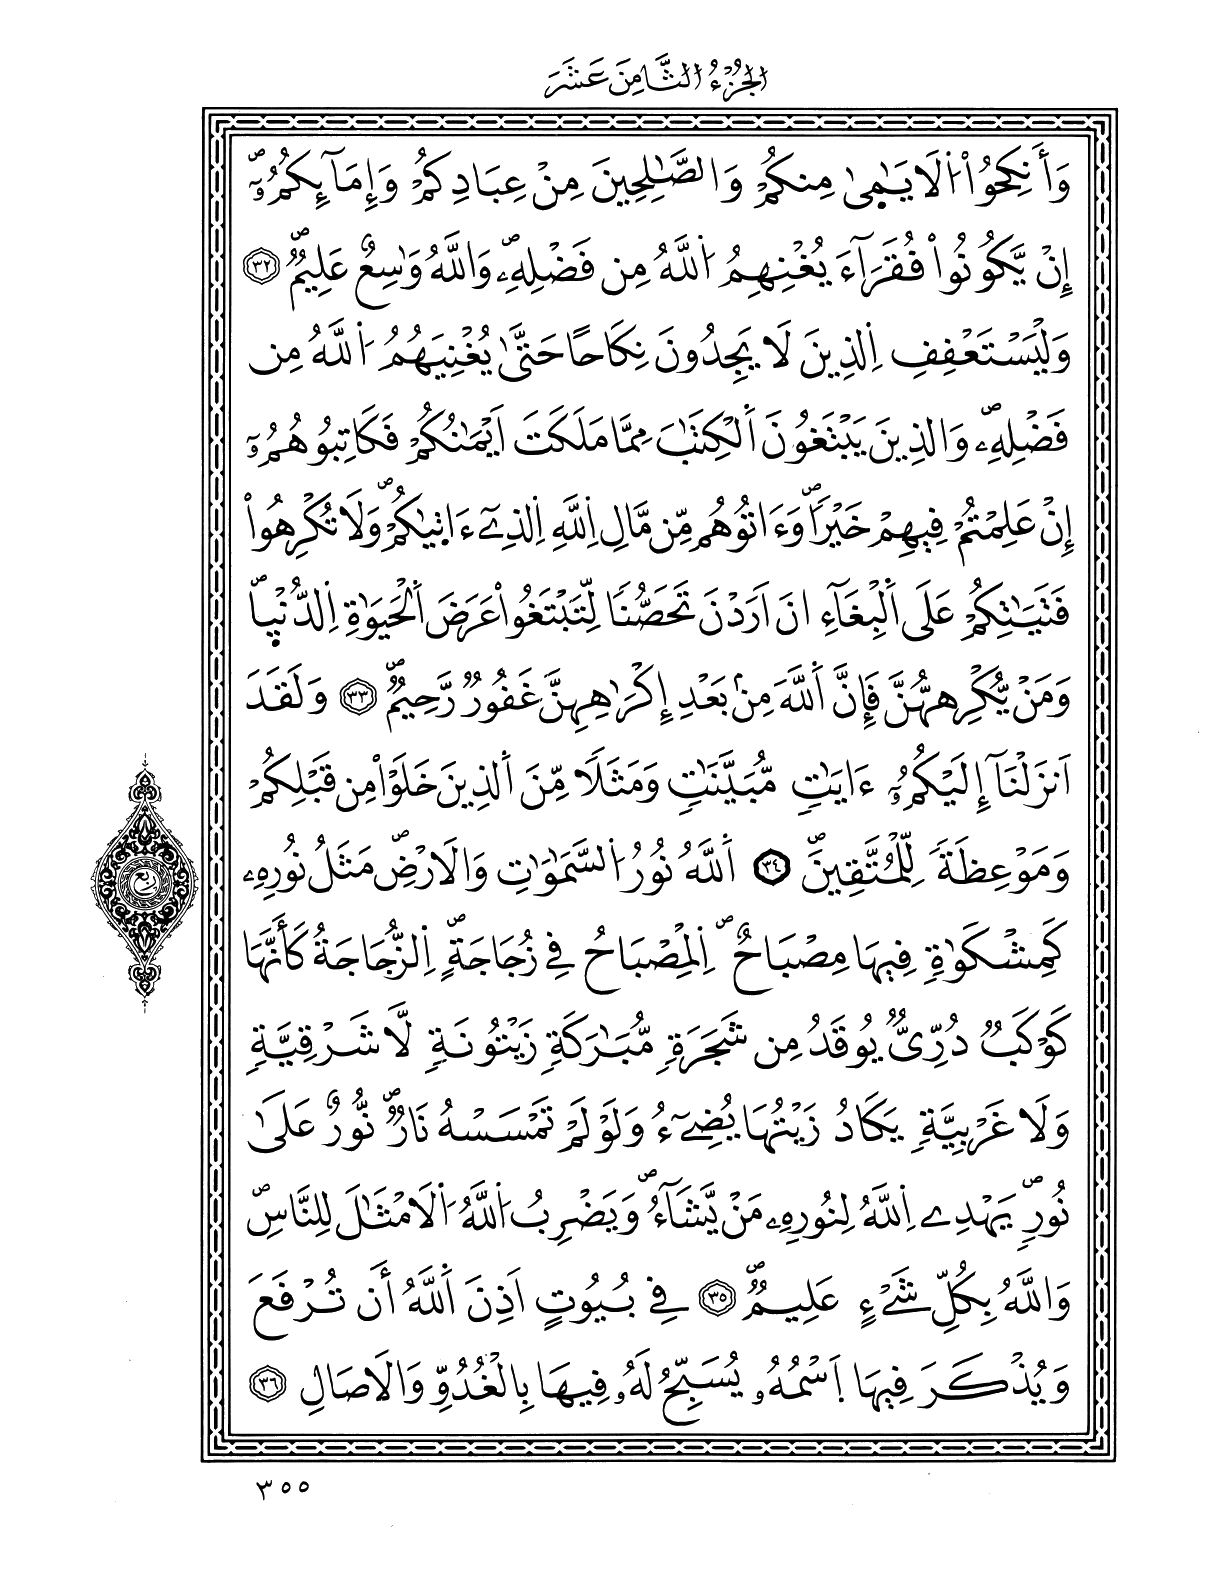 الجُزْءُ الثَّامِنَ عَشَرَ
وَأَنكِحُواْ اُ۬لَايَٰم۪يٰ مِنكُمْ وَالصَّٰلِحِينَ مِنْ عِبَادِكُمْ وَإِمَآئِكُمُۥٓۖ
إِنْ يَّكُونُواْ فُقَرَآءَ يُغْنِهِمُ اُ۬للَّهُ مِن فَضْلِهِۦۖ وَاللَّهُ وَٰسِعٌ عَلِيمٞۖ ٣٢
وَلْيَسْتَعْفِفِ اِ۬لذِينَ لَا يَجِدُونَ نِكَاحاً حَتَّىٰ يُغْنِيَهُمُ اُ۬للَّهُ مِن
فَضْلِهِۦۖ وَالذِينَ يَبْتَغُونَ اَ۬لْكِتَٰبَ مِمَّا مَلَكَتَ اَيْمَٰنُكُمْ فَكَاتِبُوهُمُۥٓ
إِنْ عَلِمْتُمْ فِيهِمْ خَيْراٗۖ وَءَاتُوهُم مِّن مَّالِ اِ۬للَّهِ اِ۬لذِےٓ ءَات۪يٰكُمْۖ وَلَا تُكْرِهُواْ
فَتَيَٰتِكُمْ عَلَى اَ۬لْبِغَآءِ انَ اَرَدْنَ تَحَصُّناٗ لِّتَبْتَغُواْ عَرَضَ اَ۬لْحَيَوٰةِ اِ۬لدُّنْي۪اۖ
وَمَنْ يُّكْرِههُّنَّ فَإِنَّ اَ۬للَّهَ مِنۢ بَعْدِ إِكْرَٰهِهِنَّ غَفُورٞ رَّحِيمٞۖ ٣٣ وَلَقَدَ
اَنزَلْنَآ إِلَيْكُمُۥٓ ءَايَٰتٖ مُّبَيَّنَٰتٖ وَمَثَلاٗ مِّنَ اَ۬لذِينَ خَلَوْاْ مِن قَبْلِكُمْ
وَمَوْعِظَةٗ لِّلْمُتَّقِينَۖ ٣٤ اَ۬للَّهُ نُورُ اُ۬لسَّمَٰوَٰتِ وَالَارْضِۖ مَثَلُ نُورِهِۦ
كَمِشْكَوٰةٖ فِيهَا مِصْبَاحٌۖ اِ۬لْمِصْبَاحُ فِے زُجَاجَةٍۖ اِ۬لزُّجَاجَةُ كَأَنَّهَا
كَوْكَبٞ دُرِّيّٞ يُوقَدُ مِن شَجَرَةٖ مُّبَٰرَكَةٖ زَيْتُونَةٖ لَّا شَرْقِيَّةٖ
وَلَا غَرْبِيَّةٖ يَكَادُ زَيْتُهَا يُضِےٓءُ وَلَوْ لَمْ تَمْسَسْهُ نَارٞۖ نُّورٌ عَلَىٰ
نُورٖۖ يَهْدِے اِ۬للَّهُ لِنُورِهِۦ مَنْ يَّشَآءُۖ وَيَضْرِبُ اُ۬للَّهُ اُ۬لَامْثَٰلَ لِلنَّاسِۖ
وَاللَّهُ بِكُلِّ شَےْءٍ عَلِيمٞۖ ٣٥ فِے بُيُوتٍ اَذِنَ اَ۬للَّهُ أَن تُرْفَعَ
وَيُذْكَرَ فِيهَا اَ۪سْمُهُۥ يُسَبِّحُ لَهُۥ فِيهَا بِالْغُدُوِّ وَالَاصَالِ ٣٦
ربع
٣٥٥